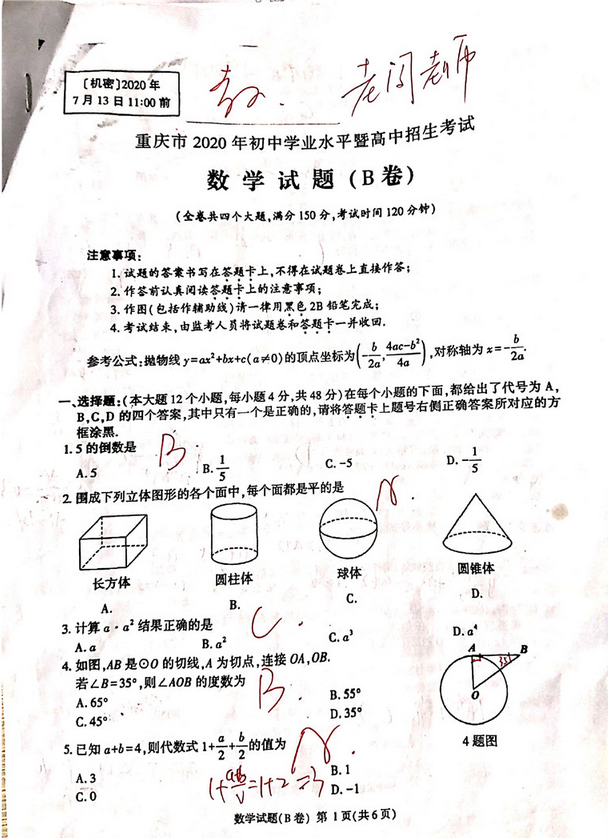 [机密]2020年
7月13日11:00前
老闫老师
重庆市2020年初中学业水平暨高中招生考试
数学试题(B卷)
(全卷共四个大题,满分150分,考试时间120分钟)
注意事项:
1.试题的答案书写在答题卡上,不得在试题卷上直接作答;
2.作答前认真阅读答题卡上的注意事项;
3.作图(包括作辅助线)请一律用黑色2B铅笔完成;
4.考试结束,由监考人员将试题卷和答题卡一并收回.
参考公式:抛物线y=ax²+bx+c(a≠0)的顶点坐标为(-b/2a, (4ac-b²)/4a),对称轴为x=-b/2a.
一、选择题:(本大题12个小题,每小题4分,共48分)在每个小题的下面,都给出了代号为A,
B,C,D的四个答案,其中只有一个是正确的,请将答题卡上题号右侧正确答案所对应的方
框涂黑.
1. 5的倒数是 B.
A. 5 B. 1/5 C. -5 D. -1/5
2. 围成下列立体图形的各个面中,每个面都是平的是
长方体 圆柱体 球体 圆锥体
A. B. C. D.
3. 计算a·a²结果正确的是 C.
A. a B. a² C. a³ D. a⁴
4. 如图,AB是⊙O的切线,A为切点,连接OA,OB.
若∠B=35°,则∠AOB的度数为 B.
A. 65° B. 55°
C. 45° D. 35°
A B
35°
O
4题图
5. 已知a+b=4,则代数式1+a/2+b/2的值为
A. 3 B. 1
C. 0 D. -1
1+(a+b)/2=1+2=3
数学试题(B卷) 第1页(共6页)